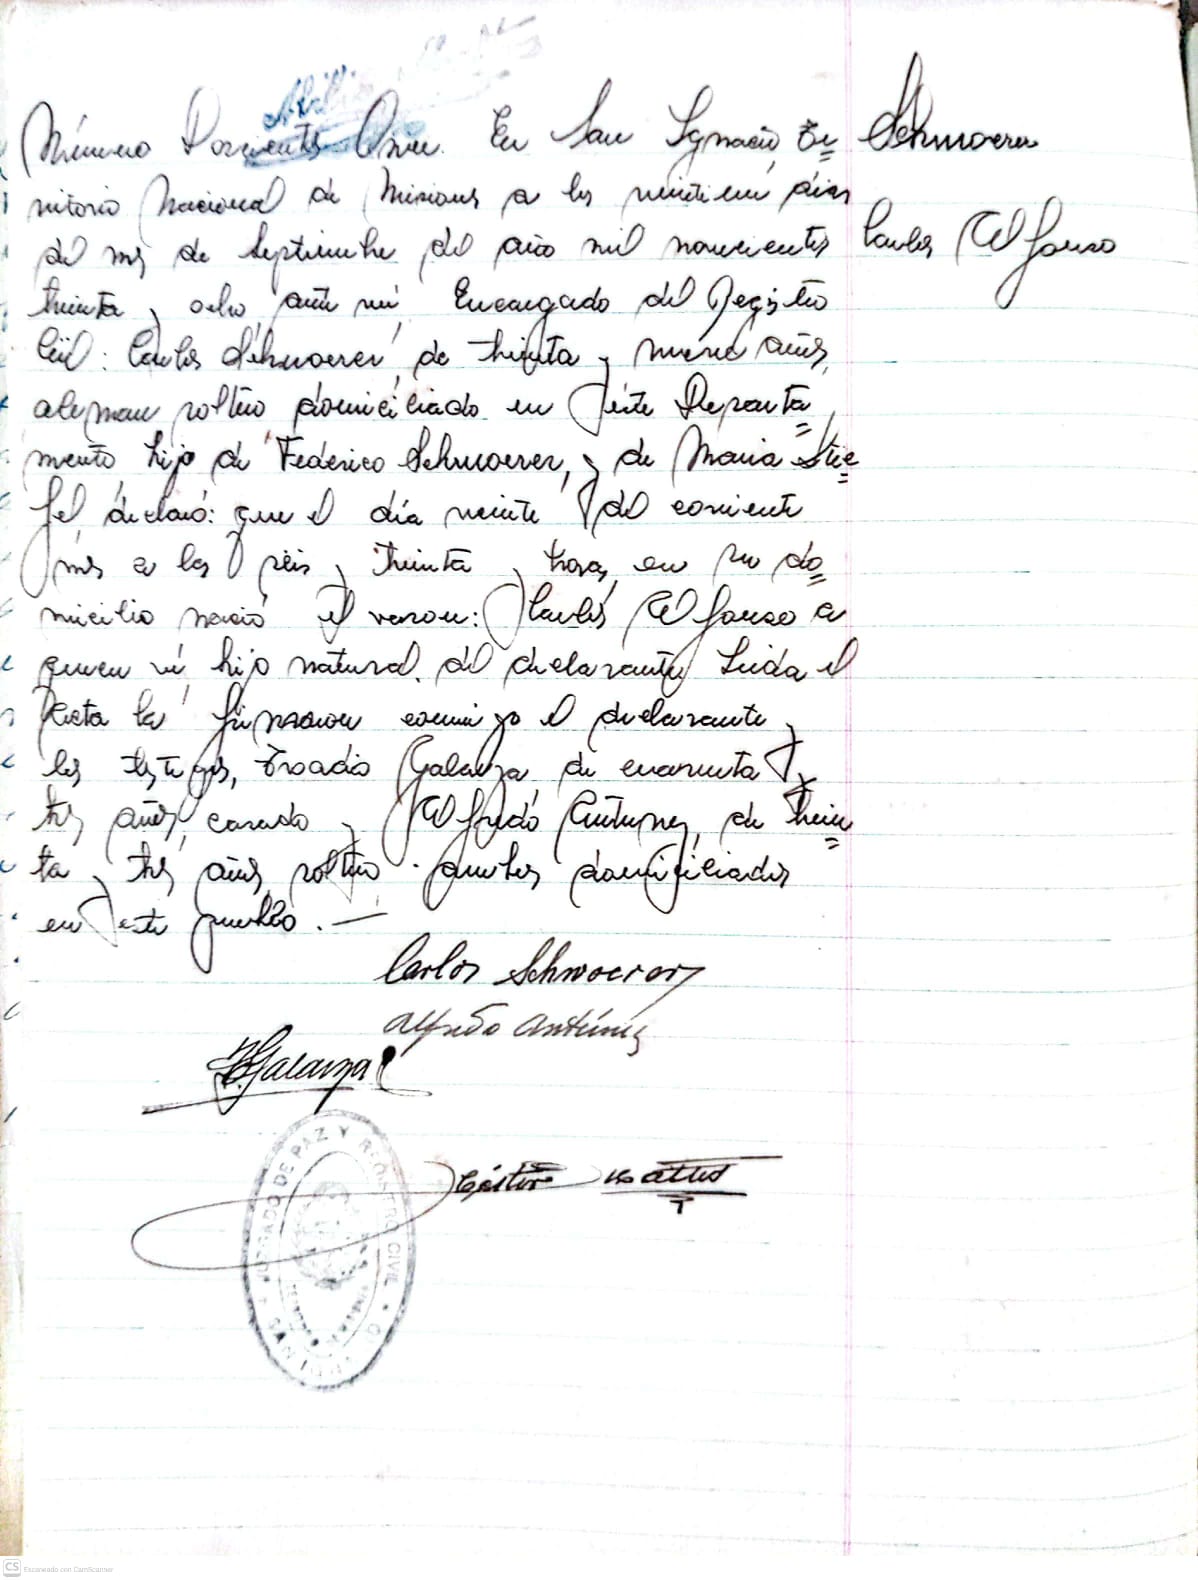 Número Doscientos Once. En San Ignacio Te=
rritorio Nacional de Misiones a los veintiun días
del mes de Septiembre del año mil novecientos
treinta y ocho, ante mí, Encargado del Registro
Civil: Carlos Schwoerer, de treinta y nueve años,
aleman soltero domiciliado en este Departa=
mento, hijo de Federico Schwoerer, y de Maria Stie=
fel, declaró: que el día veinte del corriente
mes a las seis y treinta horas, en su do=
micilio nació el varon: Carlos Alfonso a
quien es hijo natural del declarante. Leida el
Acta la firmaron conmigo el declarante y
los testigos, Eroadio Galarza de cuarenta y
tres años, casado y Alfredo Antunez, de trein=
ta y tres años, soltero ambos domiciliados
en este pueblo. —
Schwoerer
Carlos Alfonso
Carlos Schwoerer
Alfredo Antúnez
Galarza
JUZGADO DE PAZ Y REGISTRO CIVIL
SAN
CS Escaneado con CamScanner